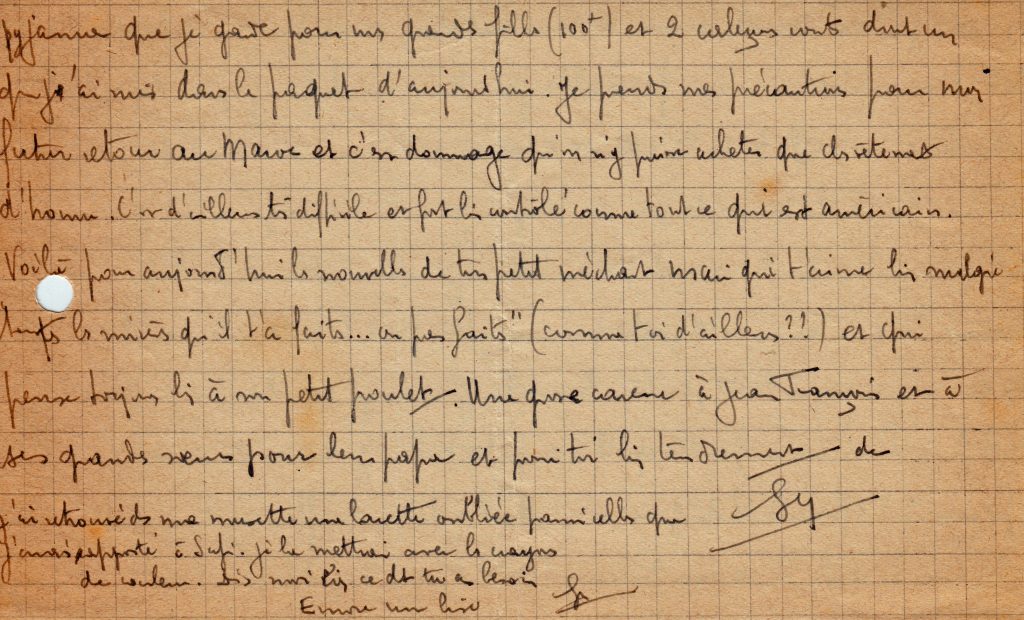 pyjama que je garde pour mes grandes filles (100+) et 2 caleçons courts dont un
que j'ai mis dans le paquet d'aujourd'hui. Je prends mes précautions pour mon
futur retour au Maroc et c'est dommage qu'on n'y puisse acheter que des vêtements
d'homme. C'est d'ailleurs très difficile et fort bien contrôlé comme tout ce qui est américain.
Voilà pour aujourd'hui les nouvelles de ton petit méchant mari qui t'aime bien malgré
toutes les misères qu'il t'a faits... ou pas faits" (comme toi d'ailleurs ??) et qui
pense toujours bien à son petit poulet. Une grosse caresse à Jean François et à
ses grandes soeurs pour leur papa et pour toi bien tendrement de
j'ai retrouvé ds ma musette une lavette oubliée parmi celles que Gy
j'avais rapporté à Safi. Je la mettrai avec les crayons
de couleur. Dis moi bien ce dt tu as besoin
Encore une bise